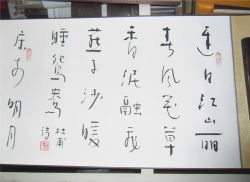 迟日江山丽
春风花草
香泥融飞
燕子沙暖
睡鸳鸯
杜甫
诗
床前明月